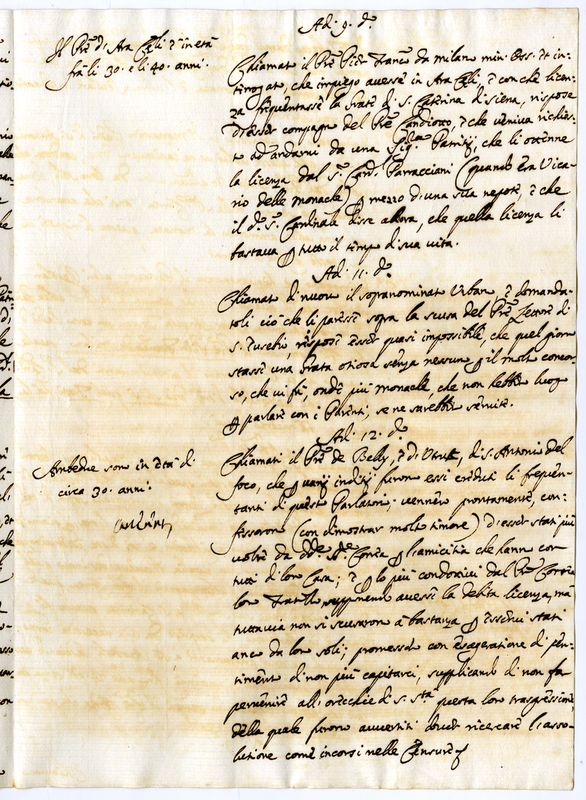 Adì 9. dº
Il Prē d'Ara Cęli è in età
frà li 30. e li 40. anni.
Chiamato il Prē Pietº Francº da milano min. Oss. et in-
terrogato, che impiego avesse in Ara Cęli, e con che licen-
za frequentasse la grate di S. Caterina di Siena, rispose
d'esser compagno del Prē Candiotto, e che veniva richies-
to ad andarvi da una Sigra Patritij, che li ottenne
la licenza dal Sr Card. Parracciani (quando era Vica-
rio delle monache) p mezzo d'una sua nepote, e che
il dº Sr Cardinale disse allora, che quella licenza li
bastava p tutto il tempo di sua vita.
Adì 11. dº
Chiamato di nuovo il sopranominato Urbano, e domanda-
toli ciò che li paresse sopra la scusa del Prē Rettore di
S. Eusebio, rispose esser quasi impossibile, che quel giorno
stasse una grata otiosa senza nessuno p il molto concor-
so, che vi fù, onde più monache, che non hebbero luogo
p parlare con i Parenti, se ne sarebbero servite.
Adì 12. dº
Ambedue sono in età di
circa 30. anni.
Chiamati il Prē de Belly, e di, di S. Antonio del
foco, che p varij inditij furono essi creduti li frequen-
tanti di questi Parlatorij, vennero prontamente, con-
fessorono (con dimostrar molto timore) d'esser stati più
volte da dª p l'amicitia che hanno con
tutti di loro Casa; e p lo più condottivi dal Prē
loro avesse la debita licenza, mà
tuttavia non si scusarono à bastanza p esservi stati
anco da loro soli; promessero con esageratione di pen-
timento di non più capitarci, supplicando di non far
pervenire all'orecchie di S. Stà questa loro trasgressione,
della quale furono avvertiti dover ricercare l'asso-
lutione come incorsi nelle Censure